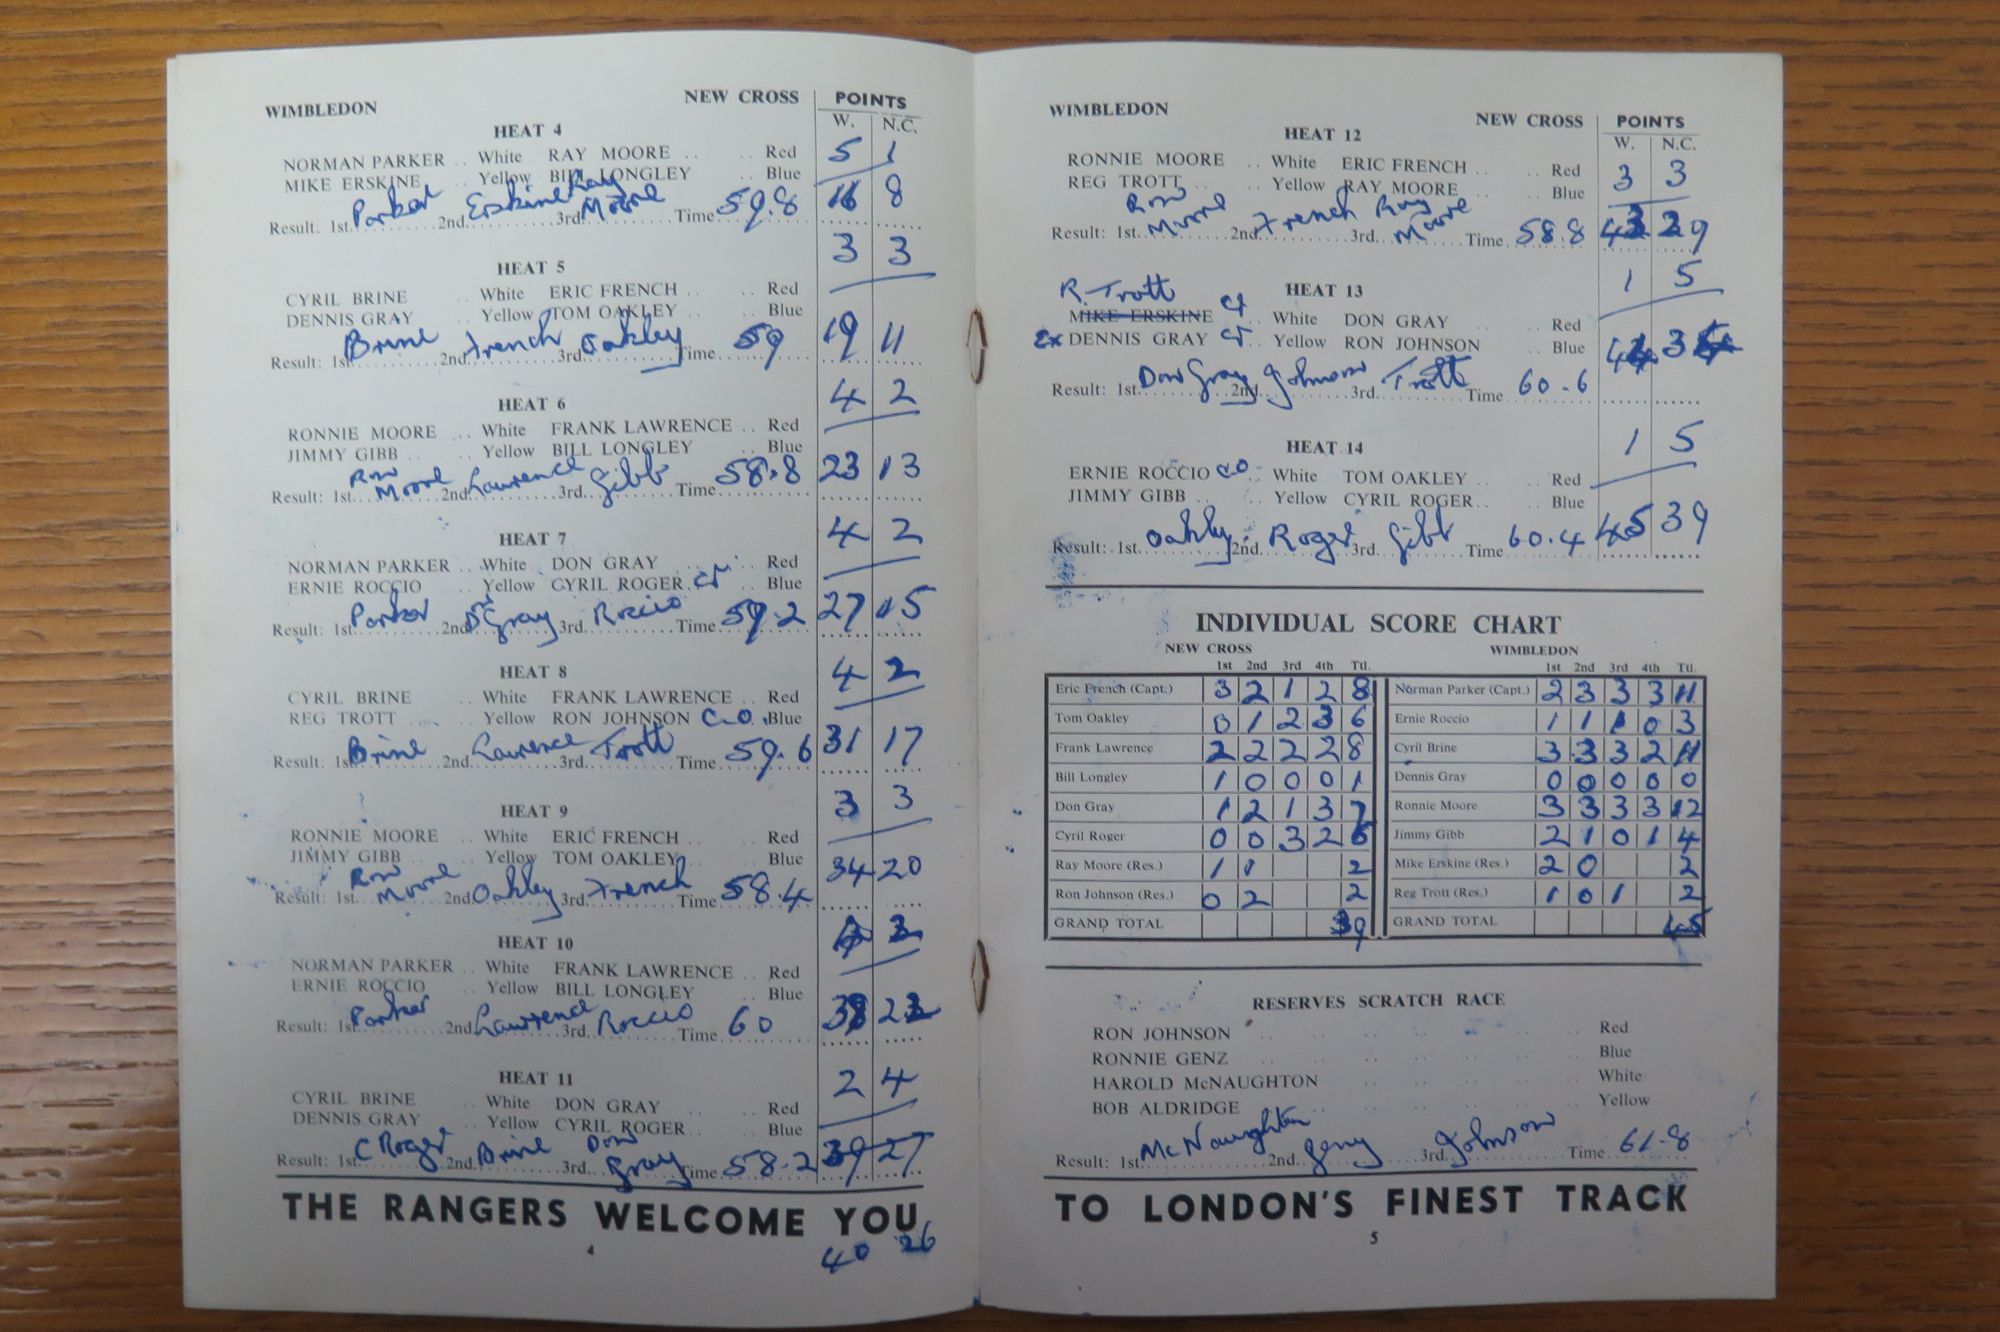 WIMBLEDON NEW CROSS POINTS
HEAT 4 W. N.C.
NORMAN PARKER .. White RAY MOORE .. .. Red 5 1
MIKE ERSKINE .. Yellow BILL LONGLEY .. Blue
Result: 1st Parker 2nd Erskine 3rd Ray Moore Time 59.8 16 8
HEAT 5 3 3
CYRIL BRINE .. White ERIC FRENCH .. .. Red
DENNIS GRAY .. Yellow TOM OAKLEY .. .. Blue
Result: 1st Brine 2nd French 3rd Oakley Time 59 19 11
HEAT 6 4 2
RONNIE MOORE .. White FRANK LAWRENCE .. Red
JIMMY GIBB .. .. Yellow BILL LONGLEY .. Blue
Result: 1st Ron Moore 2nd Lawrence 3rd Gibb Time 58.8 23 13
HEAT 7 4 2
NORMAN PARKER .. White DON GRAY .. .. Red
ERNIE ROCCIO .. Yellow CYRIL ROGER .. Blue
Result: 1st Parker 2nd Dn Gray 3rd Roccio Time 59.2 27 15
HEAT 8 4 2
CYRIL BRINE .. White FRANK LAWRENCE .. Red
REG TROTT .. Yellow RON JOHNSON C-O. Blue
Result: 1st Brine 2nd Lawrence 3rd Trott Time 59.6 31 17
HEAT 9 3 3
RONNIE MOORE .. White ERIC FRENCH .. .. Red
JIMMY GIBB .. .. Yellow TOM OAKLEY .. .. Blue
Result: 1st Ron Moore 2nd Oakley 3rd French Time 58.4 34 20
HEAT 10
NORMAN PARKER .. White FRANK LAWRENCE .. Red
ERNIE ROCCIO .. Yellow BILL LONGLEY .. Blue
Result: 1st Parker 2nd Lawrence 3rd Roccio Time 60
HEAT 11 2 4
CYRIL BRINE .. White DON GRAY .. .. Red
DENNIS GRAY .. Yellow CYRIL ROGER .. Blue
Result: 1st C Roger 2nd Brine 3rd Don Gray Time 58.2 39 27
THE RANGERS WELCOME YOU
40 26
4
WIMBLEDON NEW CROSS POINTS
HEAT 12 W. N.C.
RONNIE MOORE .. White ERIC FRENCH .. .. Red 3 3
REG TROTT .. .. Yellow RAY MOORE .. .. Blue
Result: 1st Ron Moore 2nd French 3rd Ray Moore Time 58.8
R. Trott HEAT 13 1 5
MIKE ERSKINE .. White DON GRAY .. .. Red
Ex DENNIS GRAY .. Yellow RON JOHNSON .. Blue
Result: 1st Don Gray 2nd Johnson 3rd Trott Time 60.6
HEAT 14 1 5
ERNIE ROCCIO .. White TOM OAKLEY .. .. Red
JIMMY GIBB .. .. Yellow CYRIL ROGER .. Blue
Result: 1st Oakley 2nd Roger 3rd Gibb Time 60.4 45 39
INDIVIDUAL SCORE CHART
NEW CROSS WIMBLEDON
1st 2nd 3rd 4th Ttl. 1st 2nd 3rd 4th Ttl.
Eric French (Capt.) 3 2 1 2 8 Norman Parker (Capt.) 2 3 3 3 11
Tom Oakley 0 1 2 3 6 Ernie Roccio 1 1 1 0 3
Frank Lawrence 2 2 2 2 8 Cyril Brine 3 3 3 2 11
Bill Longley 1 0 0 0 1 Dennis Gray 0 0 0 0 0
Don Gray 1 2 1 3 7 Ronnie Moore 3 3 3 3 12
Cyril Roger 0 0 3 2 5 Jimmy Gibb 2 1 0 1 4
Ray Moore (Res.) 1 1 2 Mike Erskine (Res.) 2 0 2
Ron Johnson (Res.) 0 2 2 Reg Trott (Res.) 1 0 1 2
GRAND TOTAL 39 GRAND TOTAL 45
RESERVES SCRATCH RACE
RON JOHNSON .. .. .. .. .. Red
RONNIE GENZ .. .. .. .. .. Blue
HAROLD McNAUGHTON .. .. .. .. White
BOB ALDRIDGE .. .. .. .. .. Yellow
Result: 1st McNaughton 2nd 3rd Johnson Time 61.8
TO LONDON'S FINEST TRACK
5